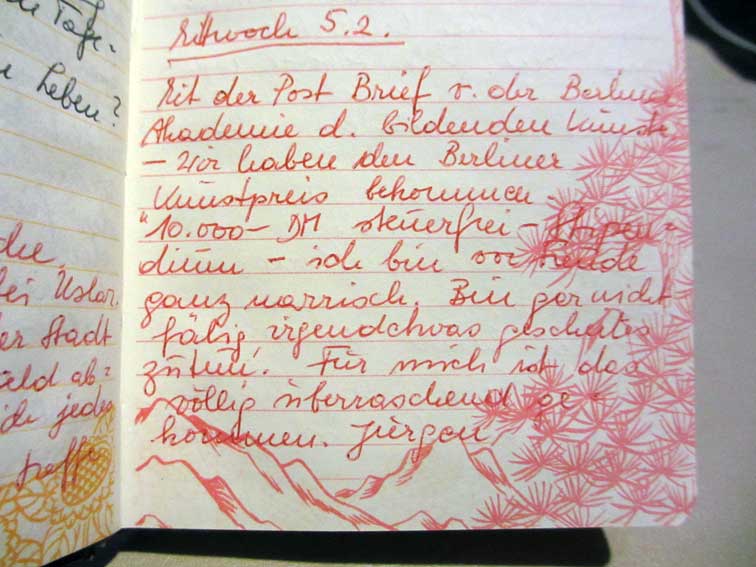 de Tage-
Leben?
bei Uslar.
er Stadt
ield ab-
ich jeden
treffe
Mittwoch 5.2.
Mit der Post Brief v. der Berliner
Akademie d. bildenden Künste
– wir haben den Berliner
Kunstpreis bekommen.
"10.000– DM steuerfrei – Stipen-
dium – ich bin vor Freude
ganz narrisch. Bin gar nicht
fähig irgendetwas gescheites
zu tun. Für mich ist das
völlig überraschend ge-
kommen. Jürgen